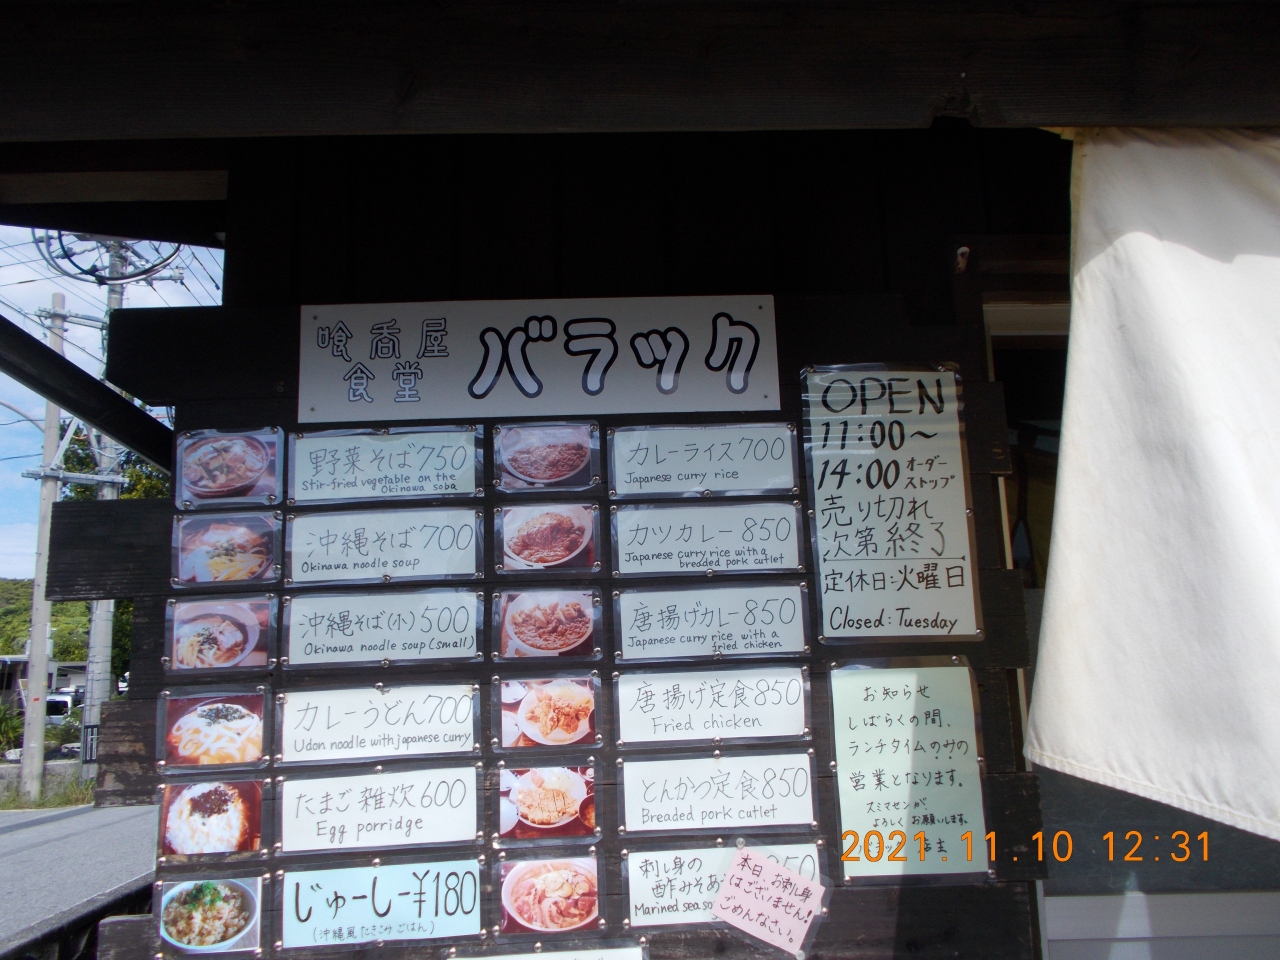 喰呑屋
食堂
バラック
野菜そば750
Stir-fried vegetable on the
Okinawa soba
沖縄そば700
Okinawa noodle soup
沖縄そば(小)500
Okinawa noodle soup(small)
カレーうどん700
Udon noodle with japanese curry
たまご雑炊600
Egg porridge
じゅーしー¥180
(沖縄風たきこみごはん)
カレーライス700
Japanese curry rice
カツカレー850
Japanese curry rice with a
breaded pork cutlet
唐揚げカレー850
Japanese curry rice with a
fried chicken
唐揚げ定食850
Fried chicken
とんかつ定食850
Breaded pork cutlet
刺し身の
酢みそあ
Marined
本日、お刺し身
はございません!
ごめんなさい。
OPEN
11:00~
14:00 オーダー
ストップ
売り切れ
次第終了
定休日:火曜日
Closed: Tuesday
お知らせ
しばらくの間、
ランチタイムのみの
営業となります。
スミマセンが
よろしくお願いします。
店主
2021.11.10 12:31